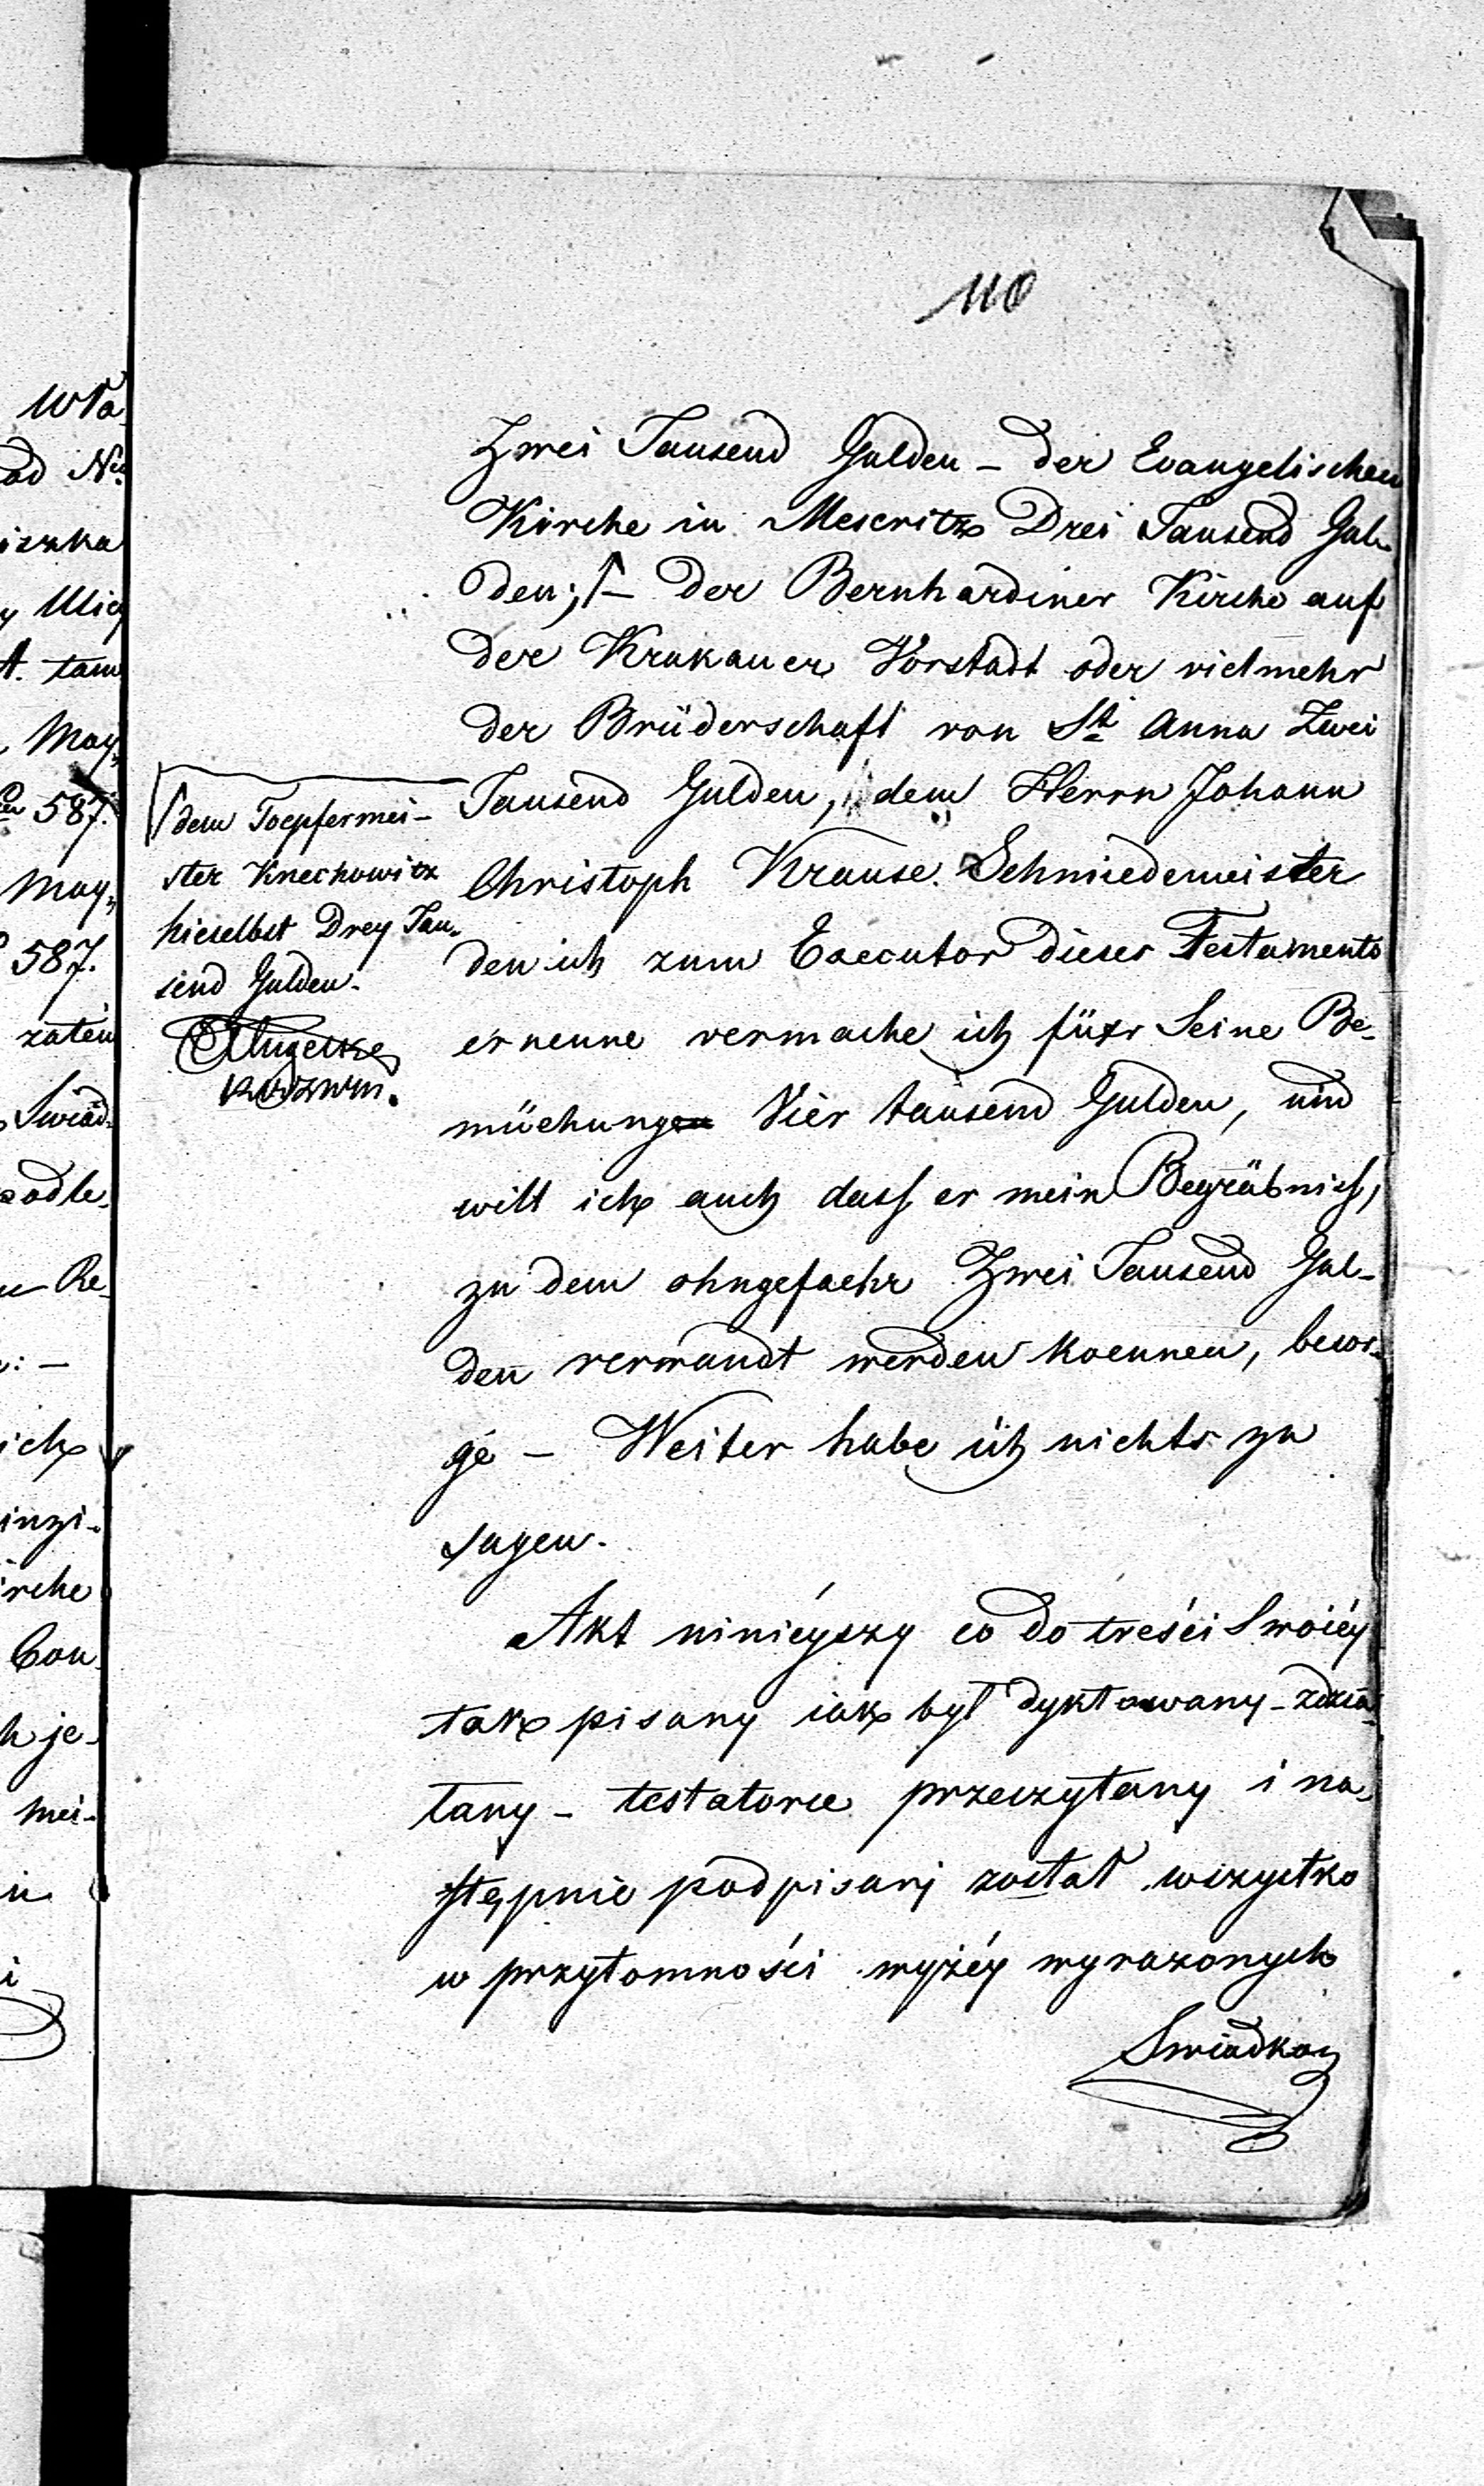 110
Zwei Tausend Gulden – der Evangelischen
Kirche in Meseritz Drei Tausend Gul-
den; ⌈– der Bernhardiner Kirche auf
der Krakauer Vorstadt oder vielmehr
der Brüderschaft von St Anna Zwei
Tausend Gulden, dem Herrn Johann
Christoph Krause. Schmiedemeister
den ich zum Executor dieses Testaments
ernenne vermache ich füer Seine Be-
müehungen Vier tausend Gulden, und
will ich auch dass er mein Begräbniss,
zu dem ohngefaehr Zwei Tausend Gul-
den verwandt werden koennen, besor-
ge – Weiter habe ich nichts zu
sagen.
Akt ninieyszy co do treści Swoiéy
tak pisany iak był dyktowany – zdzia-
łany – testatorce przeczytany i na-
stępnie podpisany został wszystko
w przytomności wyżéy wyrazonych
Swiadkow
⌈ dem Toepfermei-
ster Knechowitz
hieselbst Drey Tau-
send Gulden.
Wła
ad No
iszka
y Ulicy
A. tam
May,
587.
May,
587.
zatém
Swiad-
odle-
Re-
ich
inzi-
irche
Con-
h je-
mei-